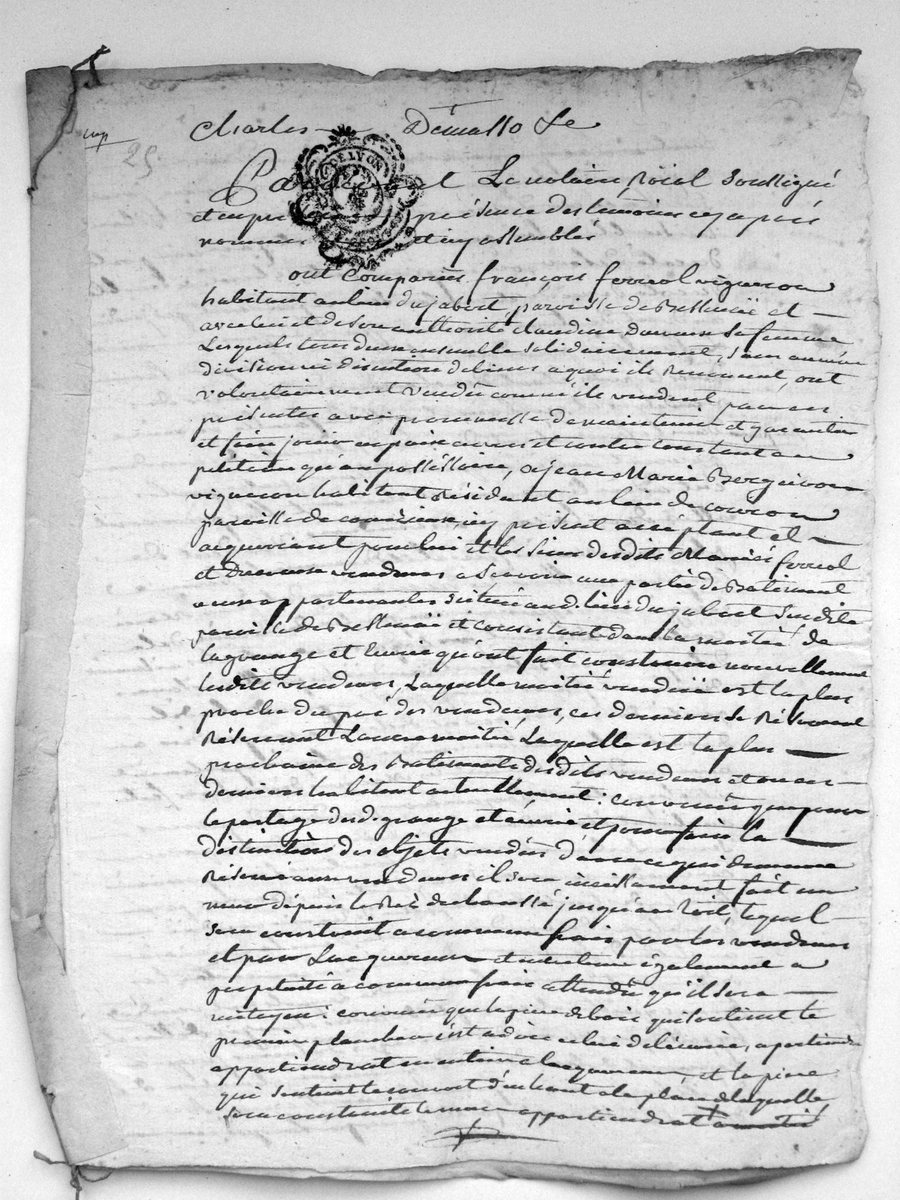 25
Charles Démasso Le
Le notaire Roial soussigné
et en présence des témoins cy après
nommés et soussignés
ont comparus françois ferreol vigneron
habitant au lieu du jabert paroisse de et
avec lui et de son authorité claudine sa femme
Lesquels tous deux ensemble solidairement, sans aucune
division ni discution de biens a quoi ils Renoncent, ont
volontairement vendu comme ils vendent par ces
présentes avec promesse de maintenir et garantir
et faire jouir en paix envers et contre tous tant au
pétitoire qu'au possessoire, a jean Marie Bergeron
vigneron habitant Résidant au lieu de
paroisse de icy présent acceptant et
acquerrant pour lui et les siens desdits Mariés ferreol
et vendeurs a Savoir une partie de Batiment
a eux appartenantes scituée audit lieu du jabert Susdite
paroisse de et consistant dans la moitié de
la grange et Ecurie qu'ont fait construire nouvellement
lesdits vendeurs, Laquelle moitié vendüe est la plus
proche du pré des vendeurs, ces derniers se Réservent
Réservant L'autre moitié Laquelle est la plus
prochaine des Batiments desdits vendeurs et ou ces
derniers habitent actuellement: convenu que pour
le partage desd. grange et écurie et pour faire la
distinction des objets vendus d'avec ce qui demeure
Réservé aux vendeurs il sera incessamment fait un
mur depuis le Rez de chaussé jusqu'au toit, lequel
sera construit a commun frais par les vendeurs
et par L'acquereur et entretenu également a
perpétuité a commun frais attendu qu'il sera
mitoyen: convenu que la piece de bois qui soutient le
premier plancher c'est a dire celui de l'écurie, apartiendra
appartiendrat en entier a l'acquereur, et la piece
qui soutient le couvert d'en haut a la place de laquelle
sera construit le mur appartiendrat a moitié